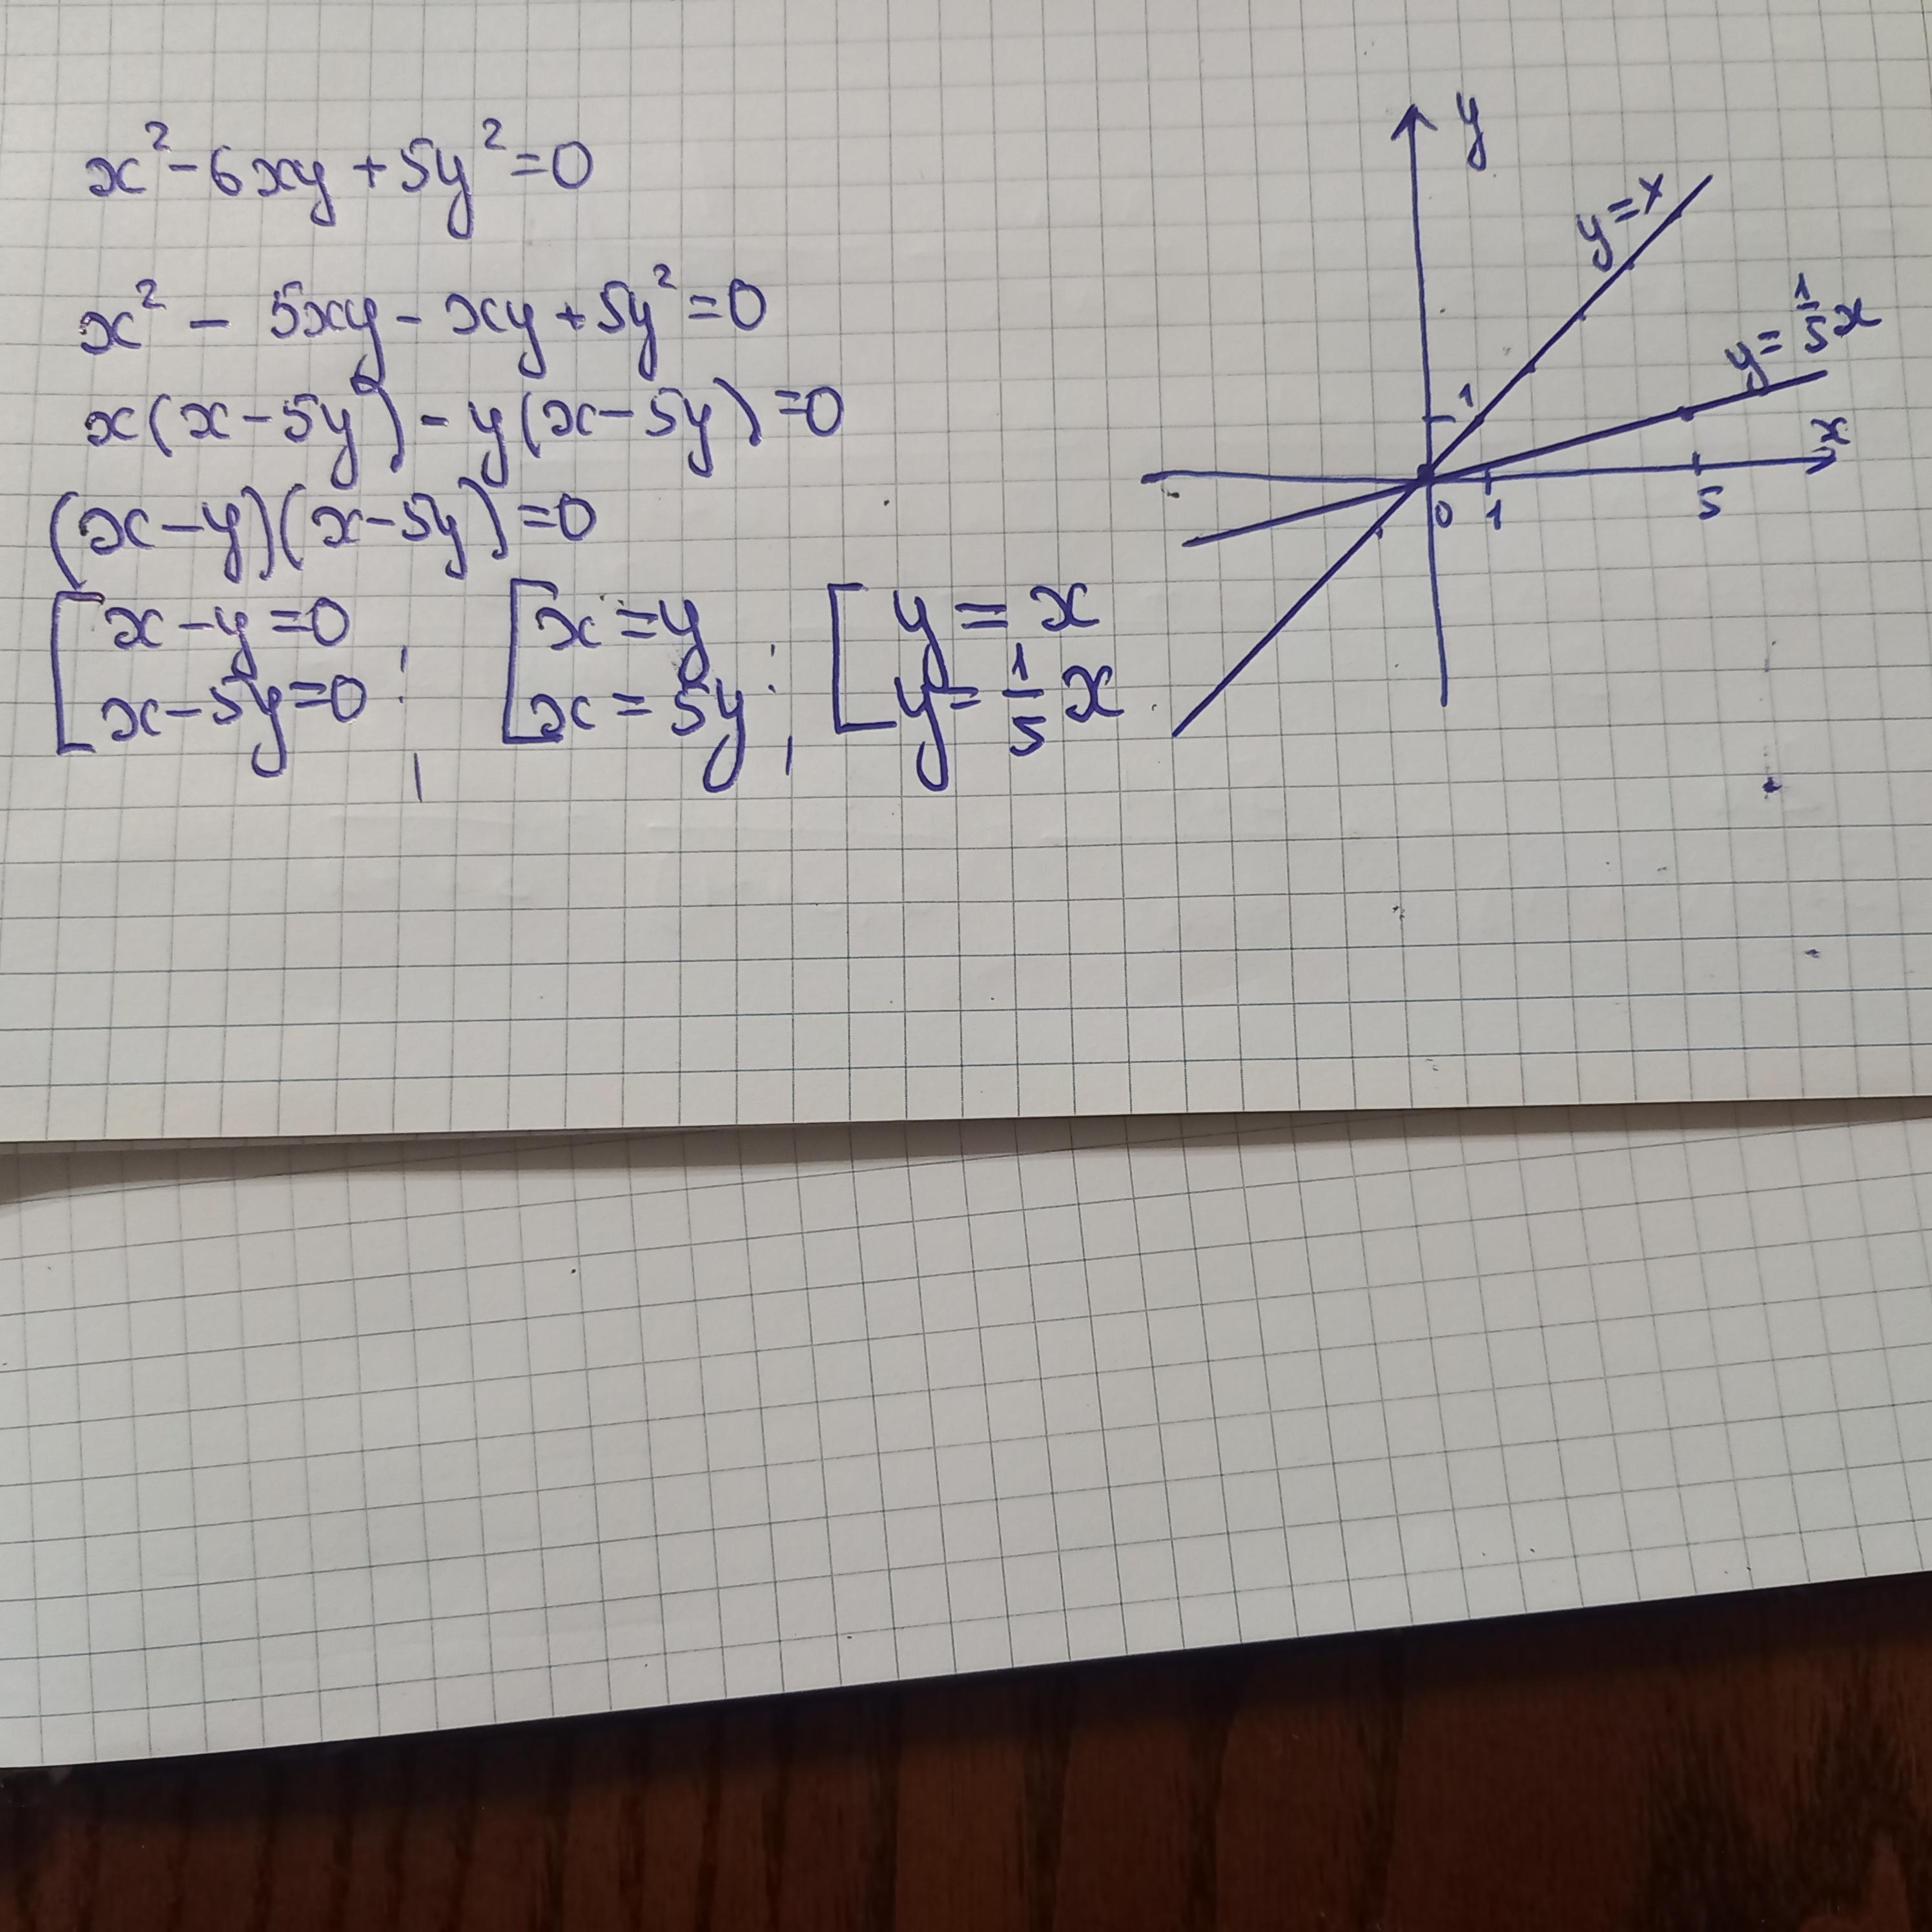 x²-6xy+5y²=0
x² - 5xy - xy + 5y²=0
x(x-5y) - y(x-5y)=0
(x-y)(x-5y)=0
[x-y=0 x-5y=0; [x=y x=5y; [y=x y=1/5x
y
y=x
y=1/5x
1
x
0 1 5